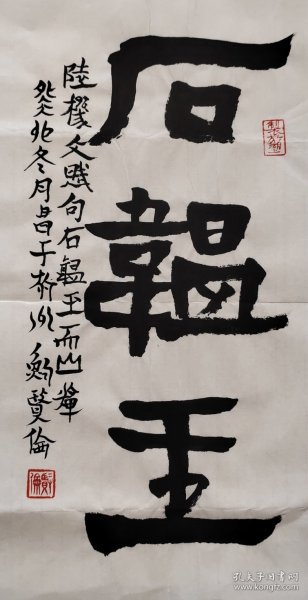 石韞玉
陸機文賦句石韞玉而山輝
癸卯冬月書于
賢倫
孔夫子旧书网
www.kongfz.com